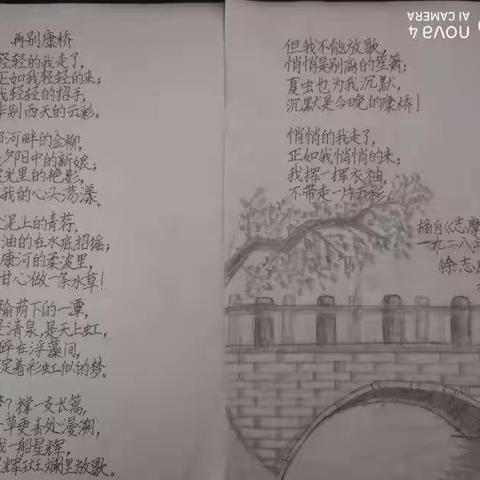 再别康桥
轻的我走了,
正如我轻轻的来;
我轻轻的招手,
作别西天的云彩。
河畔的金柳,
夕阳中的新娘;
光里的艳影,
我的心头荡漾。
泥上的青荇,
油的在水底招摇;
康河的柔波里,
甘心做一条水草!
榆荫下的一潭,
是清泉,是天上虹,
碎在浮藻间,
淀着彩虹似的梦。
?撑一支长篙,
草更青处漫溯,
一船星辉,
辉斑斓里放歌。
但我不能放歌,
悄悄是别离的笙箫;
夏虫也为我沉默,
沉默是今晚的康桥!
悄悄的我走了,
正如我悄悄的来;
我挥一挥衣袖,
不带走一片云彩。
摘自《志摩
一九二八年
徐志
nova 4
AI CAMERA